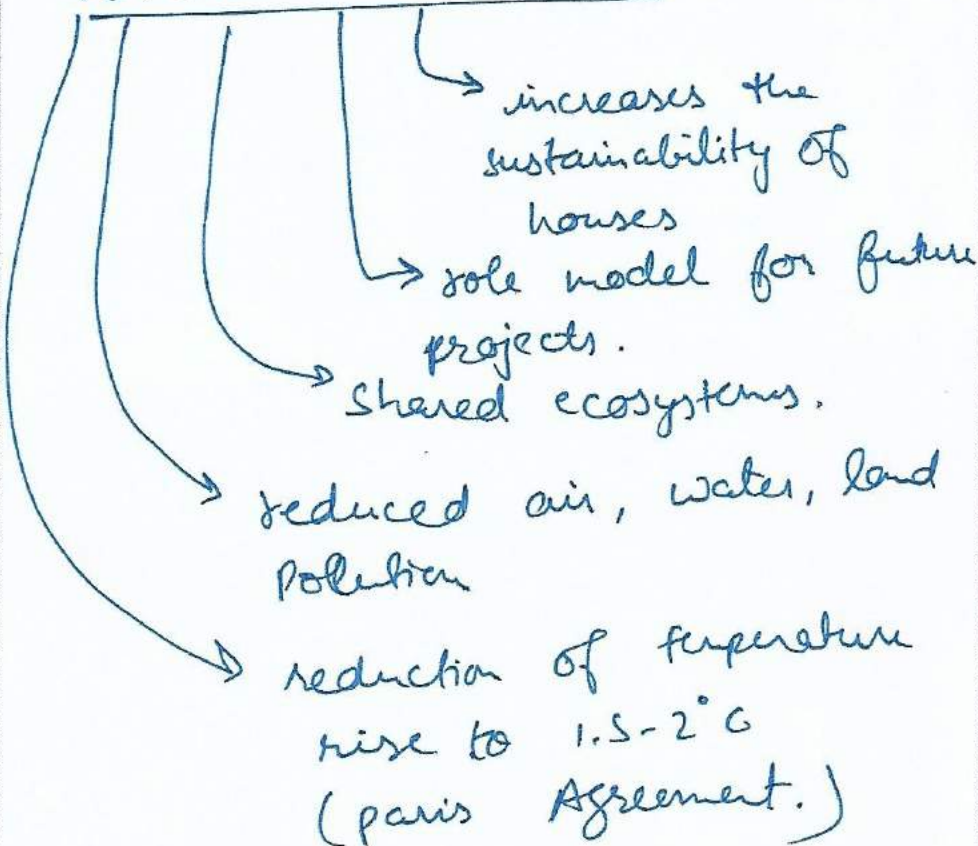 increases the
sustainability of
houses
role model for future
projects.
Shared ecosystems.
reduced air, water, land
Pollution
reduction of temperature
rise to 1.5-2°C
(paris Agreement.)